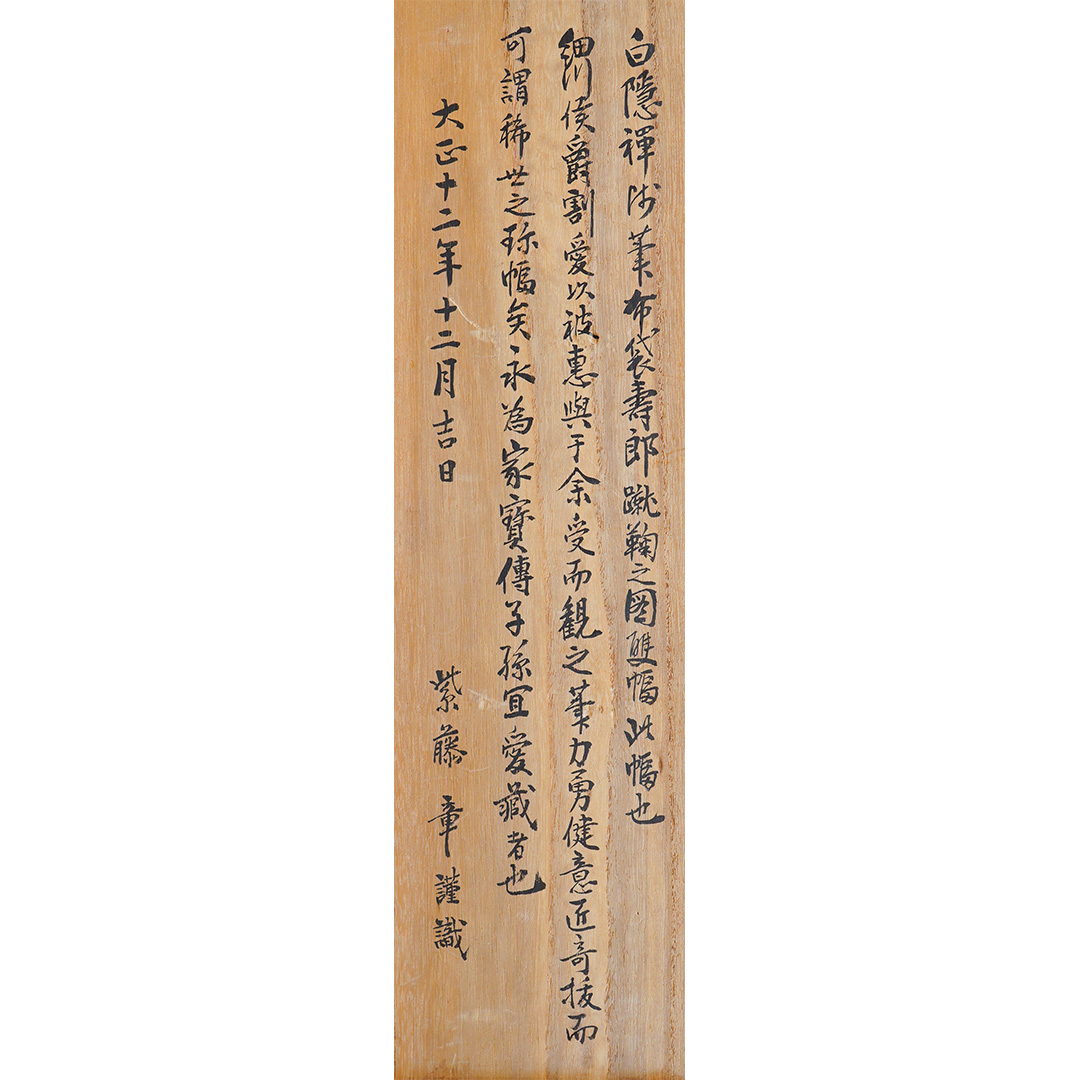 白隱禪師筆布袋壽郎蹴鞠之圖雙幅此幅也
細川侯爵割愛以被惠與于余受而觀之筆力勇健意匠奇拔而
可謂稀世之珎幅矣永為家寶傳子孫宜愛藏者也
大正十二年十二月吉日
紫藤章謹識